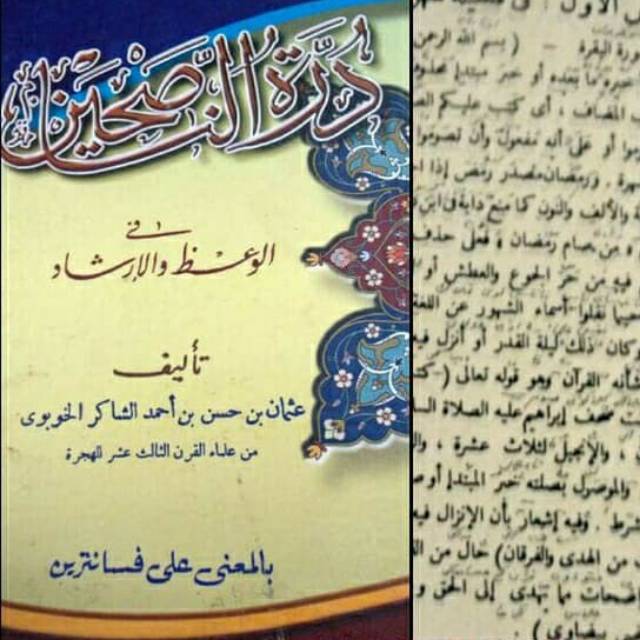 درة الناصحين
في
الوعظ والإرشاد
تأليف
عثمان بن حسن بن أحمد الشاكر الخوبوى
من علماء القرن الثالث عشر للهجرة
بالمعنى على فسانترين
الأول : فى
ورة البقرة - ( بسم الله الرحمن
خبره ما بعده أو خبر مبتدإ محذوف
المضاف ، أى كتب عليكم
موا أو على أنه مفعول وأن تصوموا
ورمضان مصدر رمض إذا
والألف والنون كما منع داية فى ابن
من صام رمضان فعلى حذف
فيه من حر الجوع والعطش أو
نقلوا أسماء الشهور عن اللغة
وكان ذلك ليلة القدر أو أنزل فيه
شأنه القرآن وهو قوله تعالى ( كتب
صحف إبراهيم عليه الصلاة
، والإنجيل لثلاث عشرة ،
والموصول بصلته خبر المبتدإ أو
شرط . وفيه إشعار بأن الإنزال فيه
من الهدى والفرقان ) حال من
اضحات مما يهدى إلى الحق و